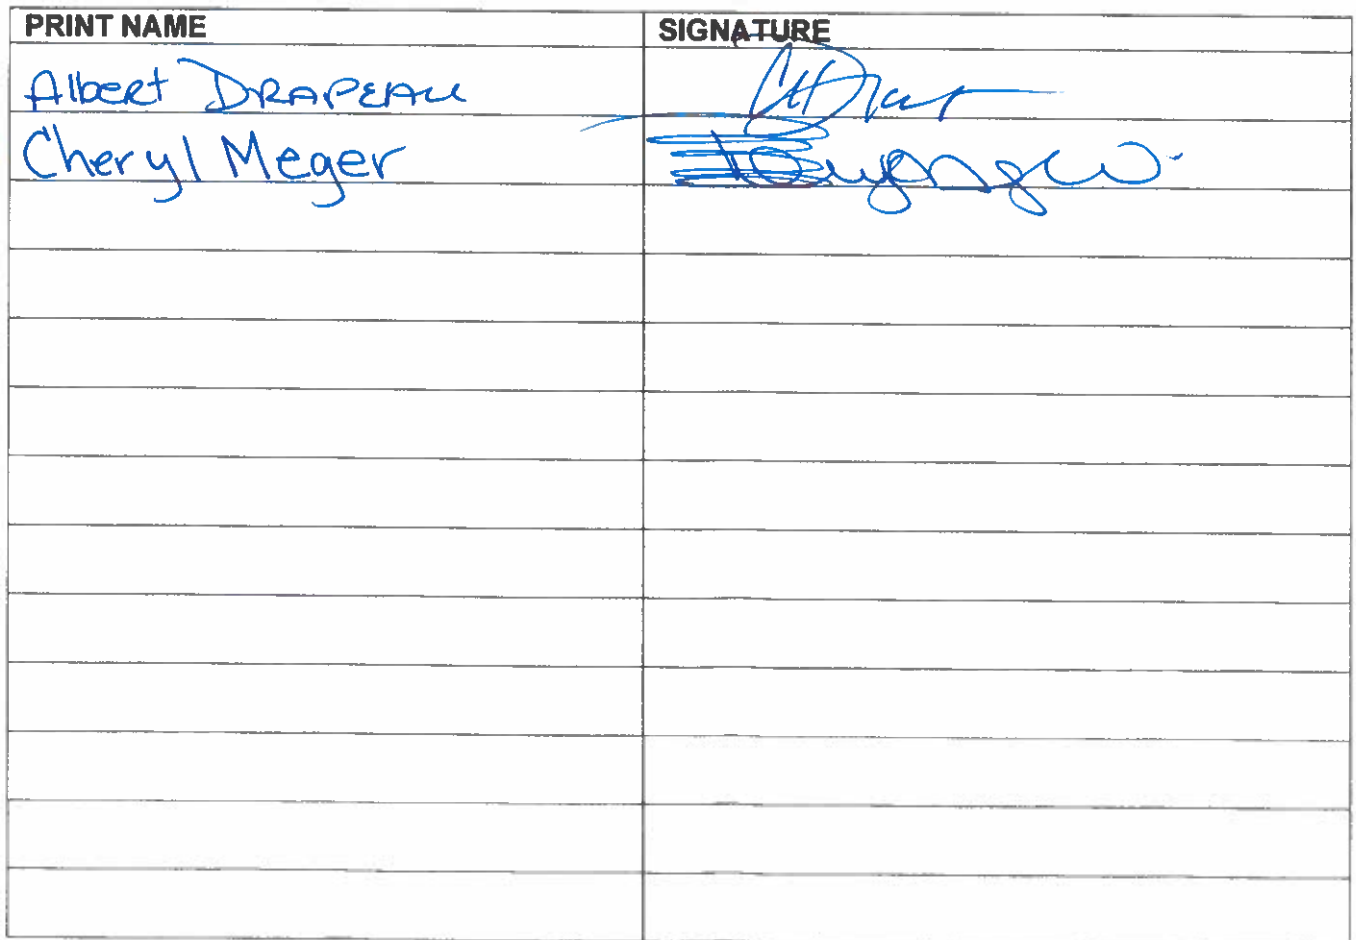 PRINT NAME SIGNATURE
Albert DRAPEAU
Cheryl Meger